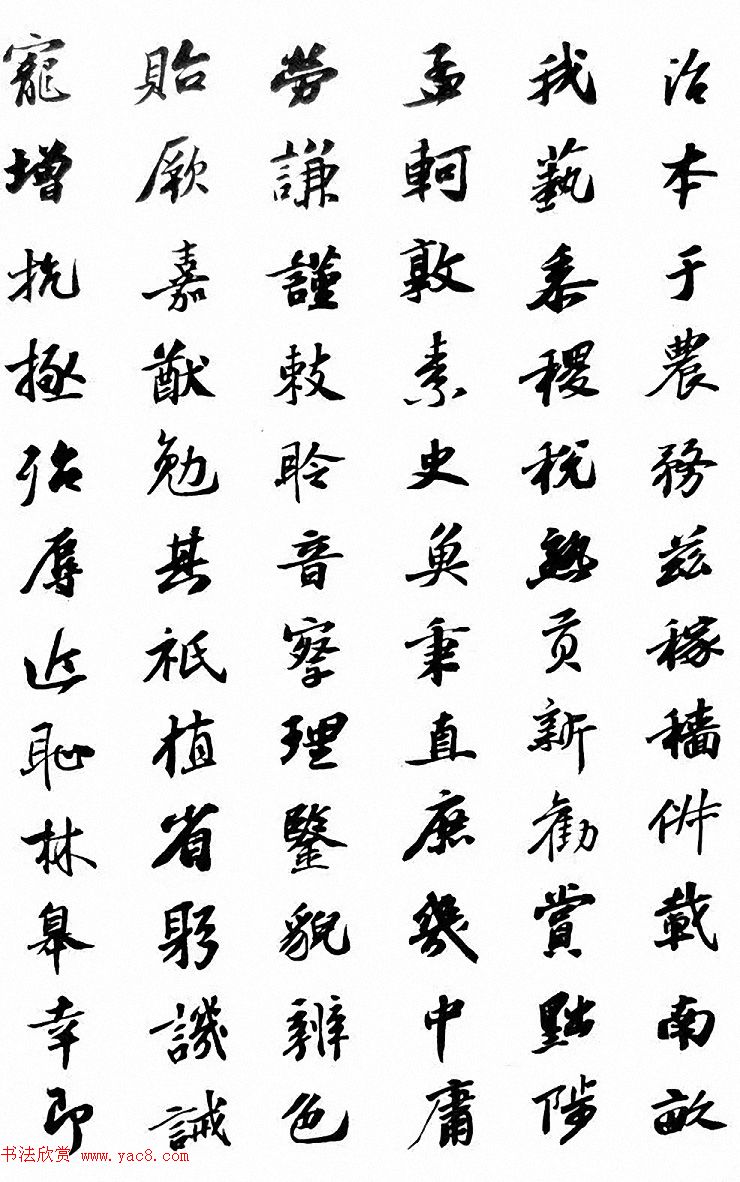 治本于農務兹稼穡俶載南畝
我藝黍稷稅熟貢新勸賞黜陟
孟軻敦素史魚秉直庶幾中庸
勞謙謹敕聆音察理鑒貌辨色
貽厥嘉猷勉其祇植省躬譏誡
寵增抗極殆辱近恥林皋幸即
书法欣赏 www.yac8.com